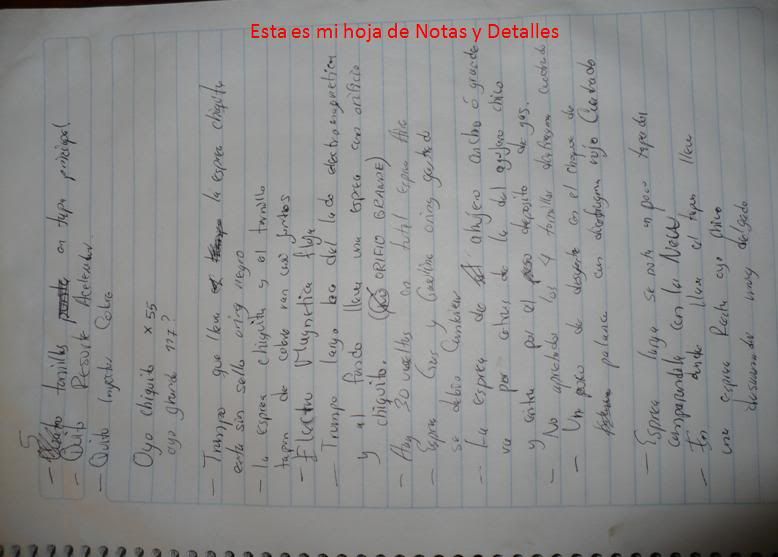 Esta es mi hoja de Notas y Detalles
5 tornillos en tapa principal
- Quito Resorte Acelerador
- Quito Inyector Cebo
Oyo chiquito x 55
oyo grande 117?
- Trompo que lleva la esprea chiquita
esta sin sello oring negro
- la esprea chiquita y el tornillo
tapon de cobre van asi juntos
- Electro Magnetica floja
- Trompo largo del lado electromagnetica
y al fondo lleva una esprea con orificio
chiquito. ORIFIO GRANDE)
- Hay 30 vueltas en total esprea Aire
- Esprea Gas y Gasolina oring gastado
se debio Cambiar
- La esprea de alujero ancho ó grande
va por atras de la del agujero chico
y entra por el deposito de gas.
- No apretados los 4 tornillos diafragma cuadrado
- Un poco de desgaste en el choque de
palanca con diafragma rojo Cuadrado
- Esprea larga se nota un poco tapada
comparandola con la Nueva
- En donde lleva el tapon lleva
una esprea Recta oyo chico
desarmador muy delgado